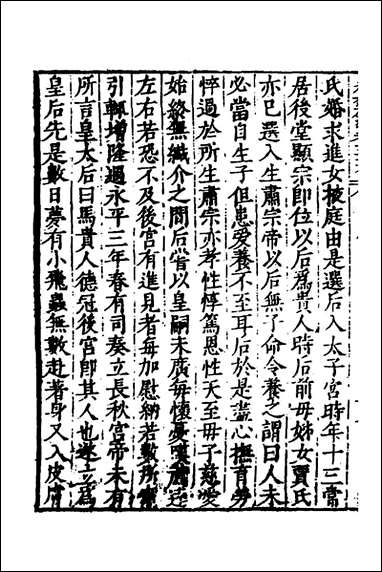 氏婚求進女掖庭由是選后入太子宮時年十三常
居後堂顯宗即位以后爲貴人時后前母姊女賈氏
亦已選入生肅宗帝以后無子命令養之謂曰人未
必當自生子但患愛養不至耳后於是盡心撫育勞
悴過於所生肅宗亦孝性惇篤恩性天至母子慈愛
始終無纖介之間后嘗以皇嗣未廣每懷憂嘆薦逹
左右若恐不及後宮有進見者每加慰納若數所寵
引輒增隆遇永平三年春有司奏立長秋宮帝未有
所言皇太后曰馬貴人德冠後宮卽其人也遂立爲
皇后先是數日夢有小飛蟲無數赴著身又入皮膚